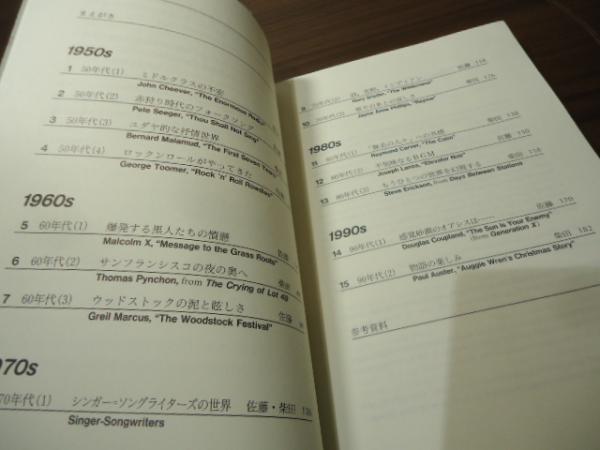 まえがき
1950s
1 50年代(1) ミドルクラスの不安
John Cheever, "The Enormous Radio"
2 50年代(2) 赤狩り時代のフォークソング
Pete Seeger, "Thou Shall Not Sing"
3 50年代(3) ユダヤ的な抒情世界
Bernard Malamud, "The First Seven Years"
4 50年代(4) ロックンロールがやってきた
George Toomer, "Rock 'n' Roll Rowdies"
1960s
5 60年代(1) 爆発する黒人たちの憤懣
Malcolm X, "Message to the Grass Roots"
6 60年代(2) サンフランシスコの夜の奥へ 柴田
Thomas Pynchon, from The Crying of Lot 49
7 60年代(3) ウッドストックの泥と眩しさ 佐藤
Greil Marcus, "The Woodstock Festival"
970s
70年代(1) シンガー=ソングライターズの世界 佐藤・柴田
Singer-Songwriters
9 70年代(2) 佐藤
Gary Snyder,
10 70年代(3) 柴田
Jayne Anne Phillips,
1980s
11 80年代(1) 柴田
Raymond Carver, "The Calm"
12 80年代(2) 不気味なBGM 佐藤
Joseph Lanza, "Elevator Noir"
13 80年代(3) もうひとつの世界を幻視する 柴田
Steve Erickson, from Days Between Stations
1990s
14 90年代(1) 感覚砂漠のオアシスは…… 佐藤 170
Douglas Coupland, "The Sun Is Your Enemy"
(from Generation X)
15 90年代(2) 物語の楽しみ 柴田 182
Paul Auster, "Auggie Wren's Christmas Story"
参考資料